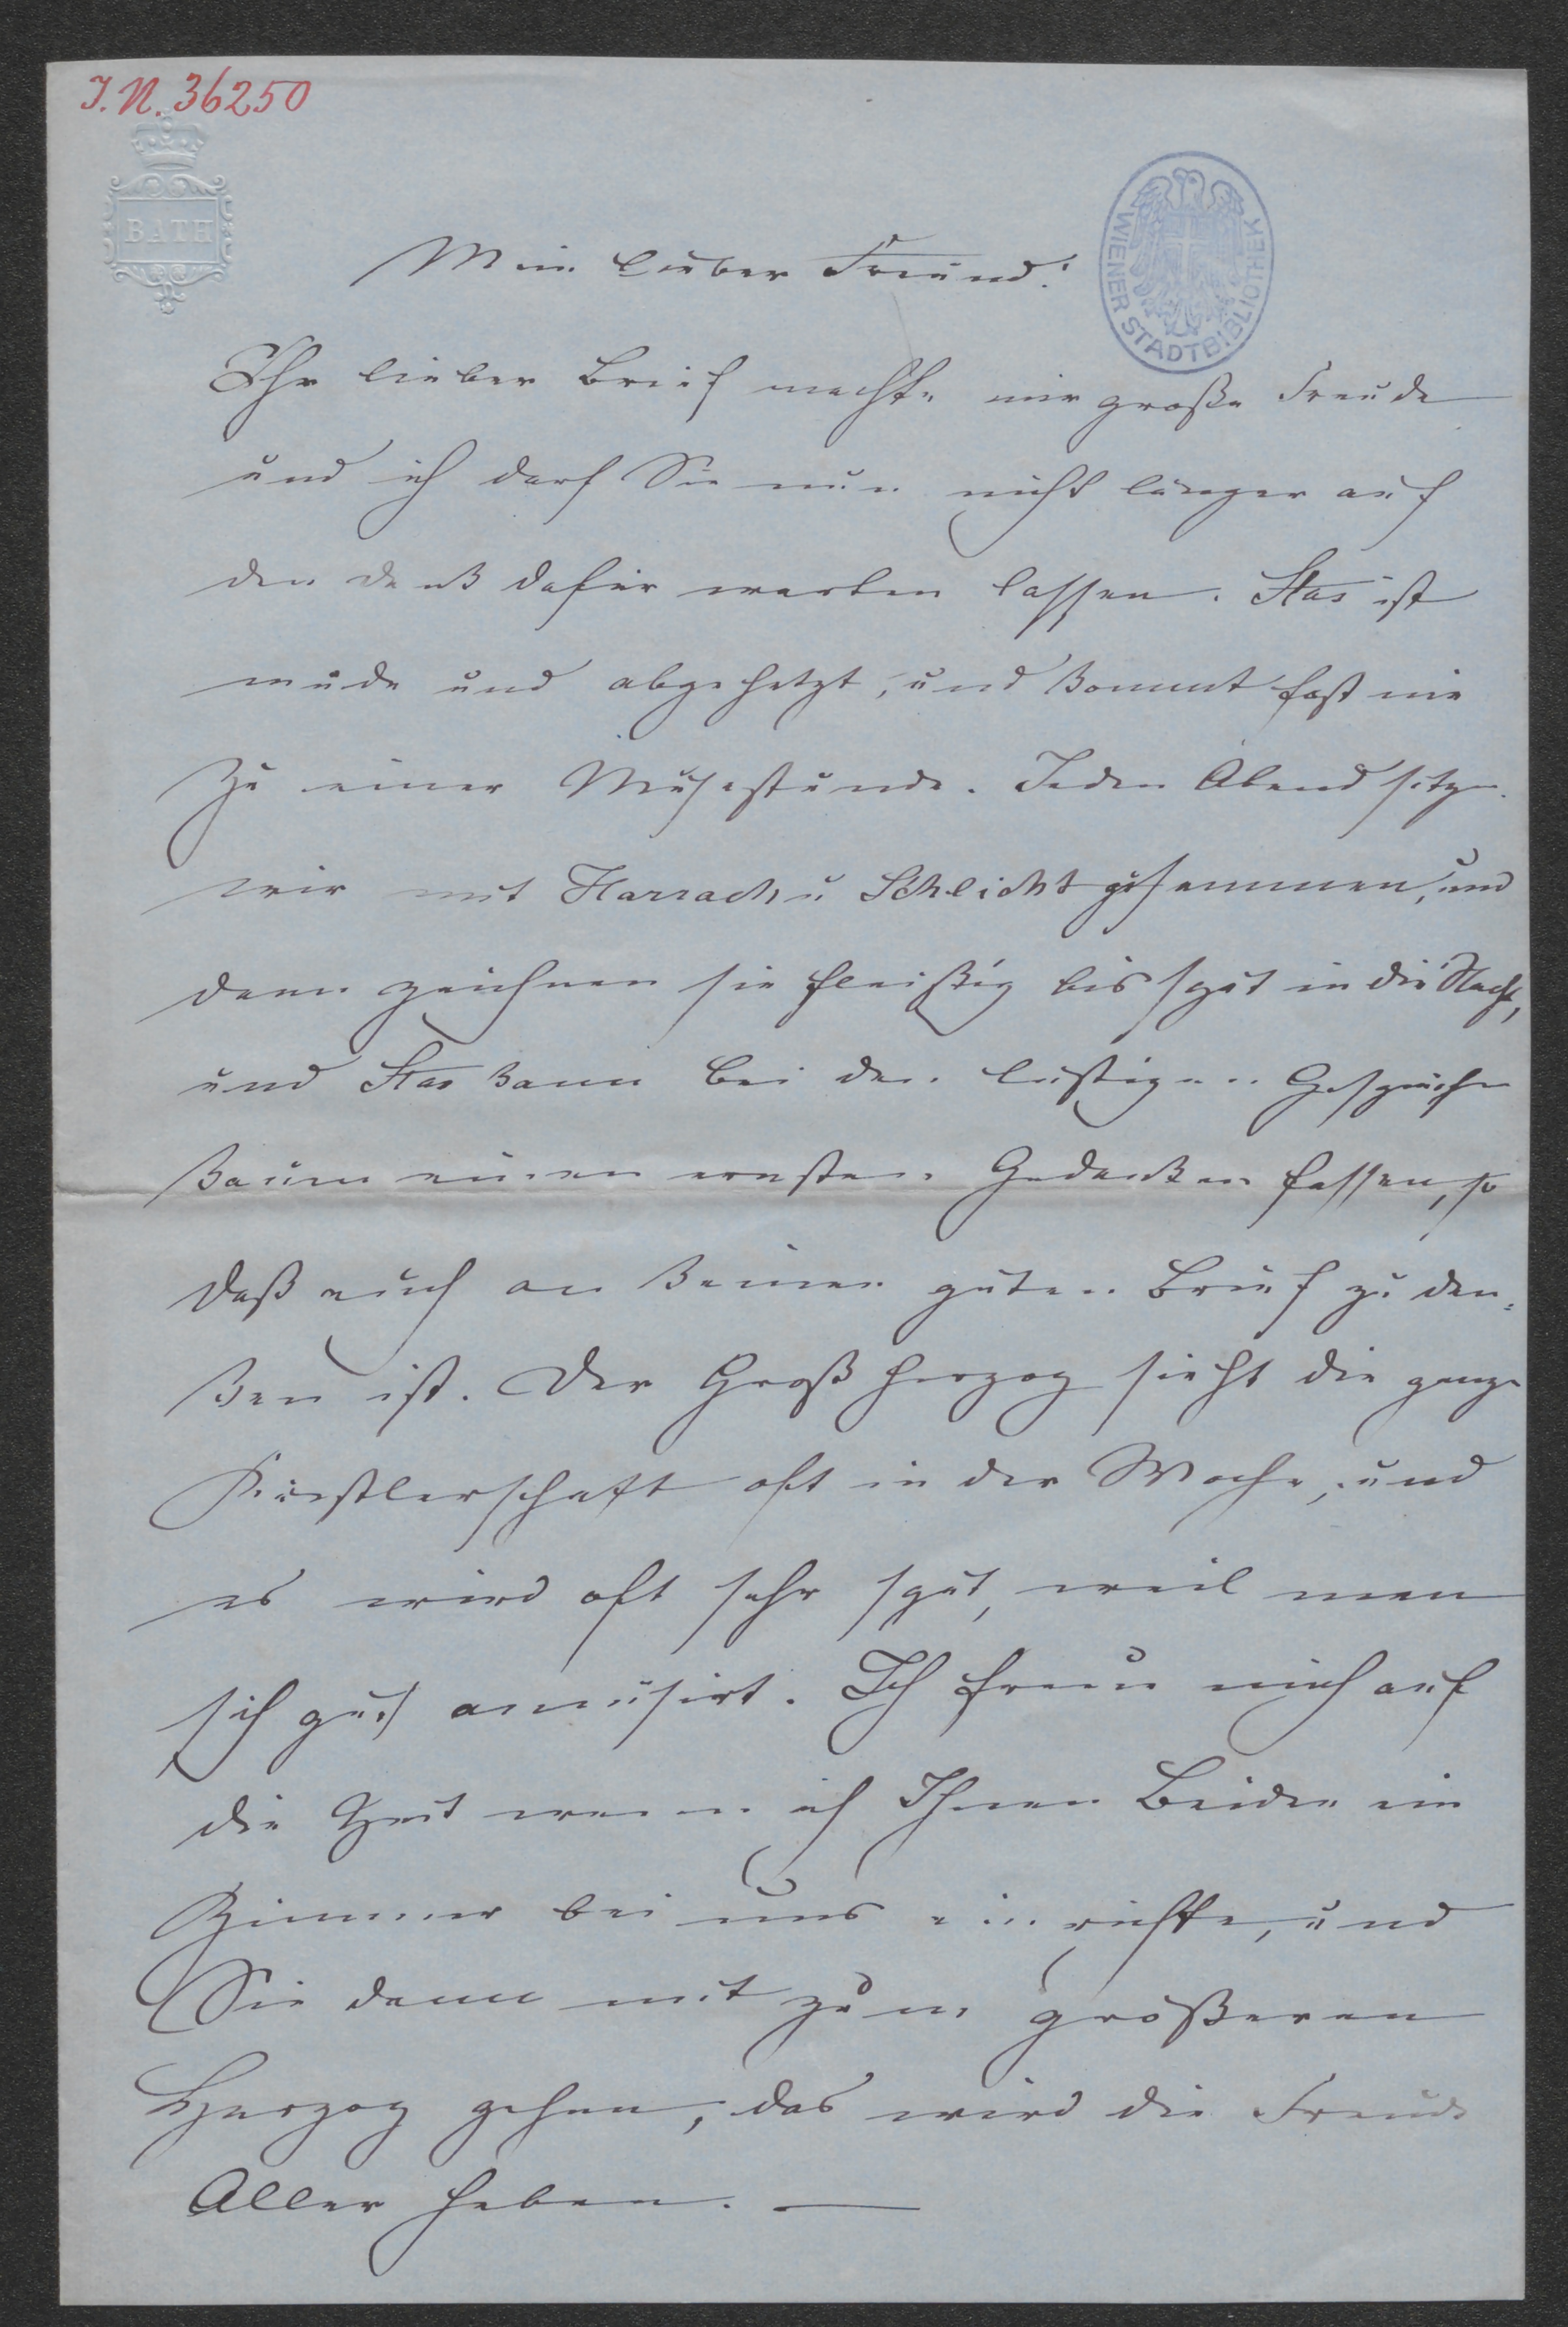 J. N. 36250
BATH
WIENER STADTBIBLIOTHEK
Mein lieber Freund!
Ihr lieber Brief machte mir große Freude
und ich darf Sie nun nicht länger auf
den Dank dafür warten lassen. Stas ist
müde und abgehetzt, und kommt fast nie
zu einer Mußestunde. Jeden Abend sitzen
wir mit Harrach u Schlicht zusammen, und
dann zeichnen sie fleißig bis spät in die Nacht,
und Stas kann bei den lustigen Gesprächen
kaum einen ernsten Gedanken fassen, so
daß auch an keinen guten Brief zu den-
ken ist. Der Großherzog sieht die ganze
Künstlerschaft oft in der Woche, und
es wird oft sehr spät, weil man
sich gut amüsirt. Ich freue mich auf
die Zeit wenn ich Ihnen Beiden ein
Zimmer bei uns einrichte, und
Sie dann mit zum größeren
Herzog gehen, das wird die Freude
Aller heben. —